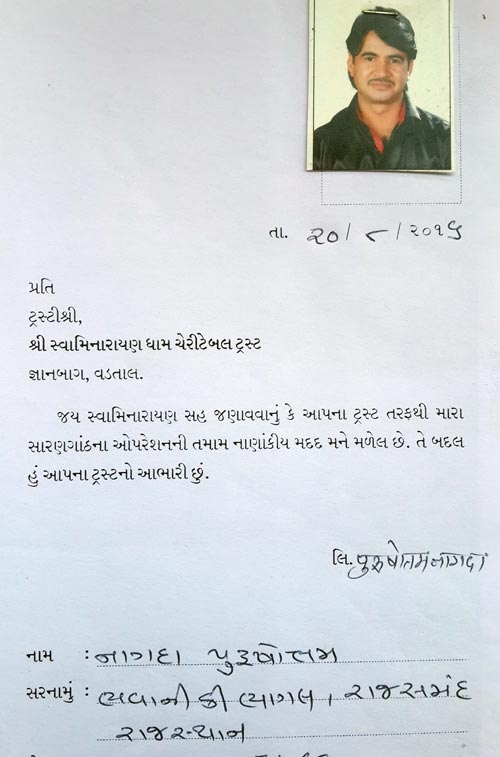 તા. ૨૦/ ૮ /૨૦૧૬
પ્રતિ
ટ્રસ્ટીશ્રી,
શ્રી સ્વામિનારાયણ ધામ ચેરીટેબલ ટ્રસ્ટ
જ્ઞાનબાગ, વડતાલ.
જય સ્વામિનારાયણ સહ જણાવવાનું કે આપના ટ્રસ્ટ તરફથી મારા
સારણગાંઠના ઓપરેશનની તમામ નાણાંકીય મદદ મને મળેલ છે. તે બદલ
હું આપના ટ્રસ્ટનો આભારી છું.
લિ. પુરુષોતમ નાગદા
નામ : નાગદા પુરૂષોત્તમ
સરનામું : ભવાની કી ભાગલ, રાજસમંદ
રાજસ્થાન